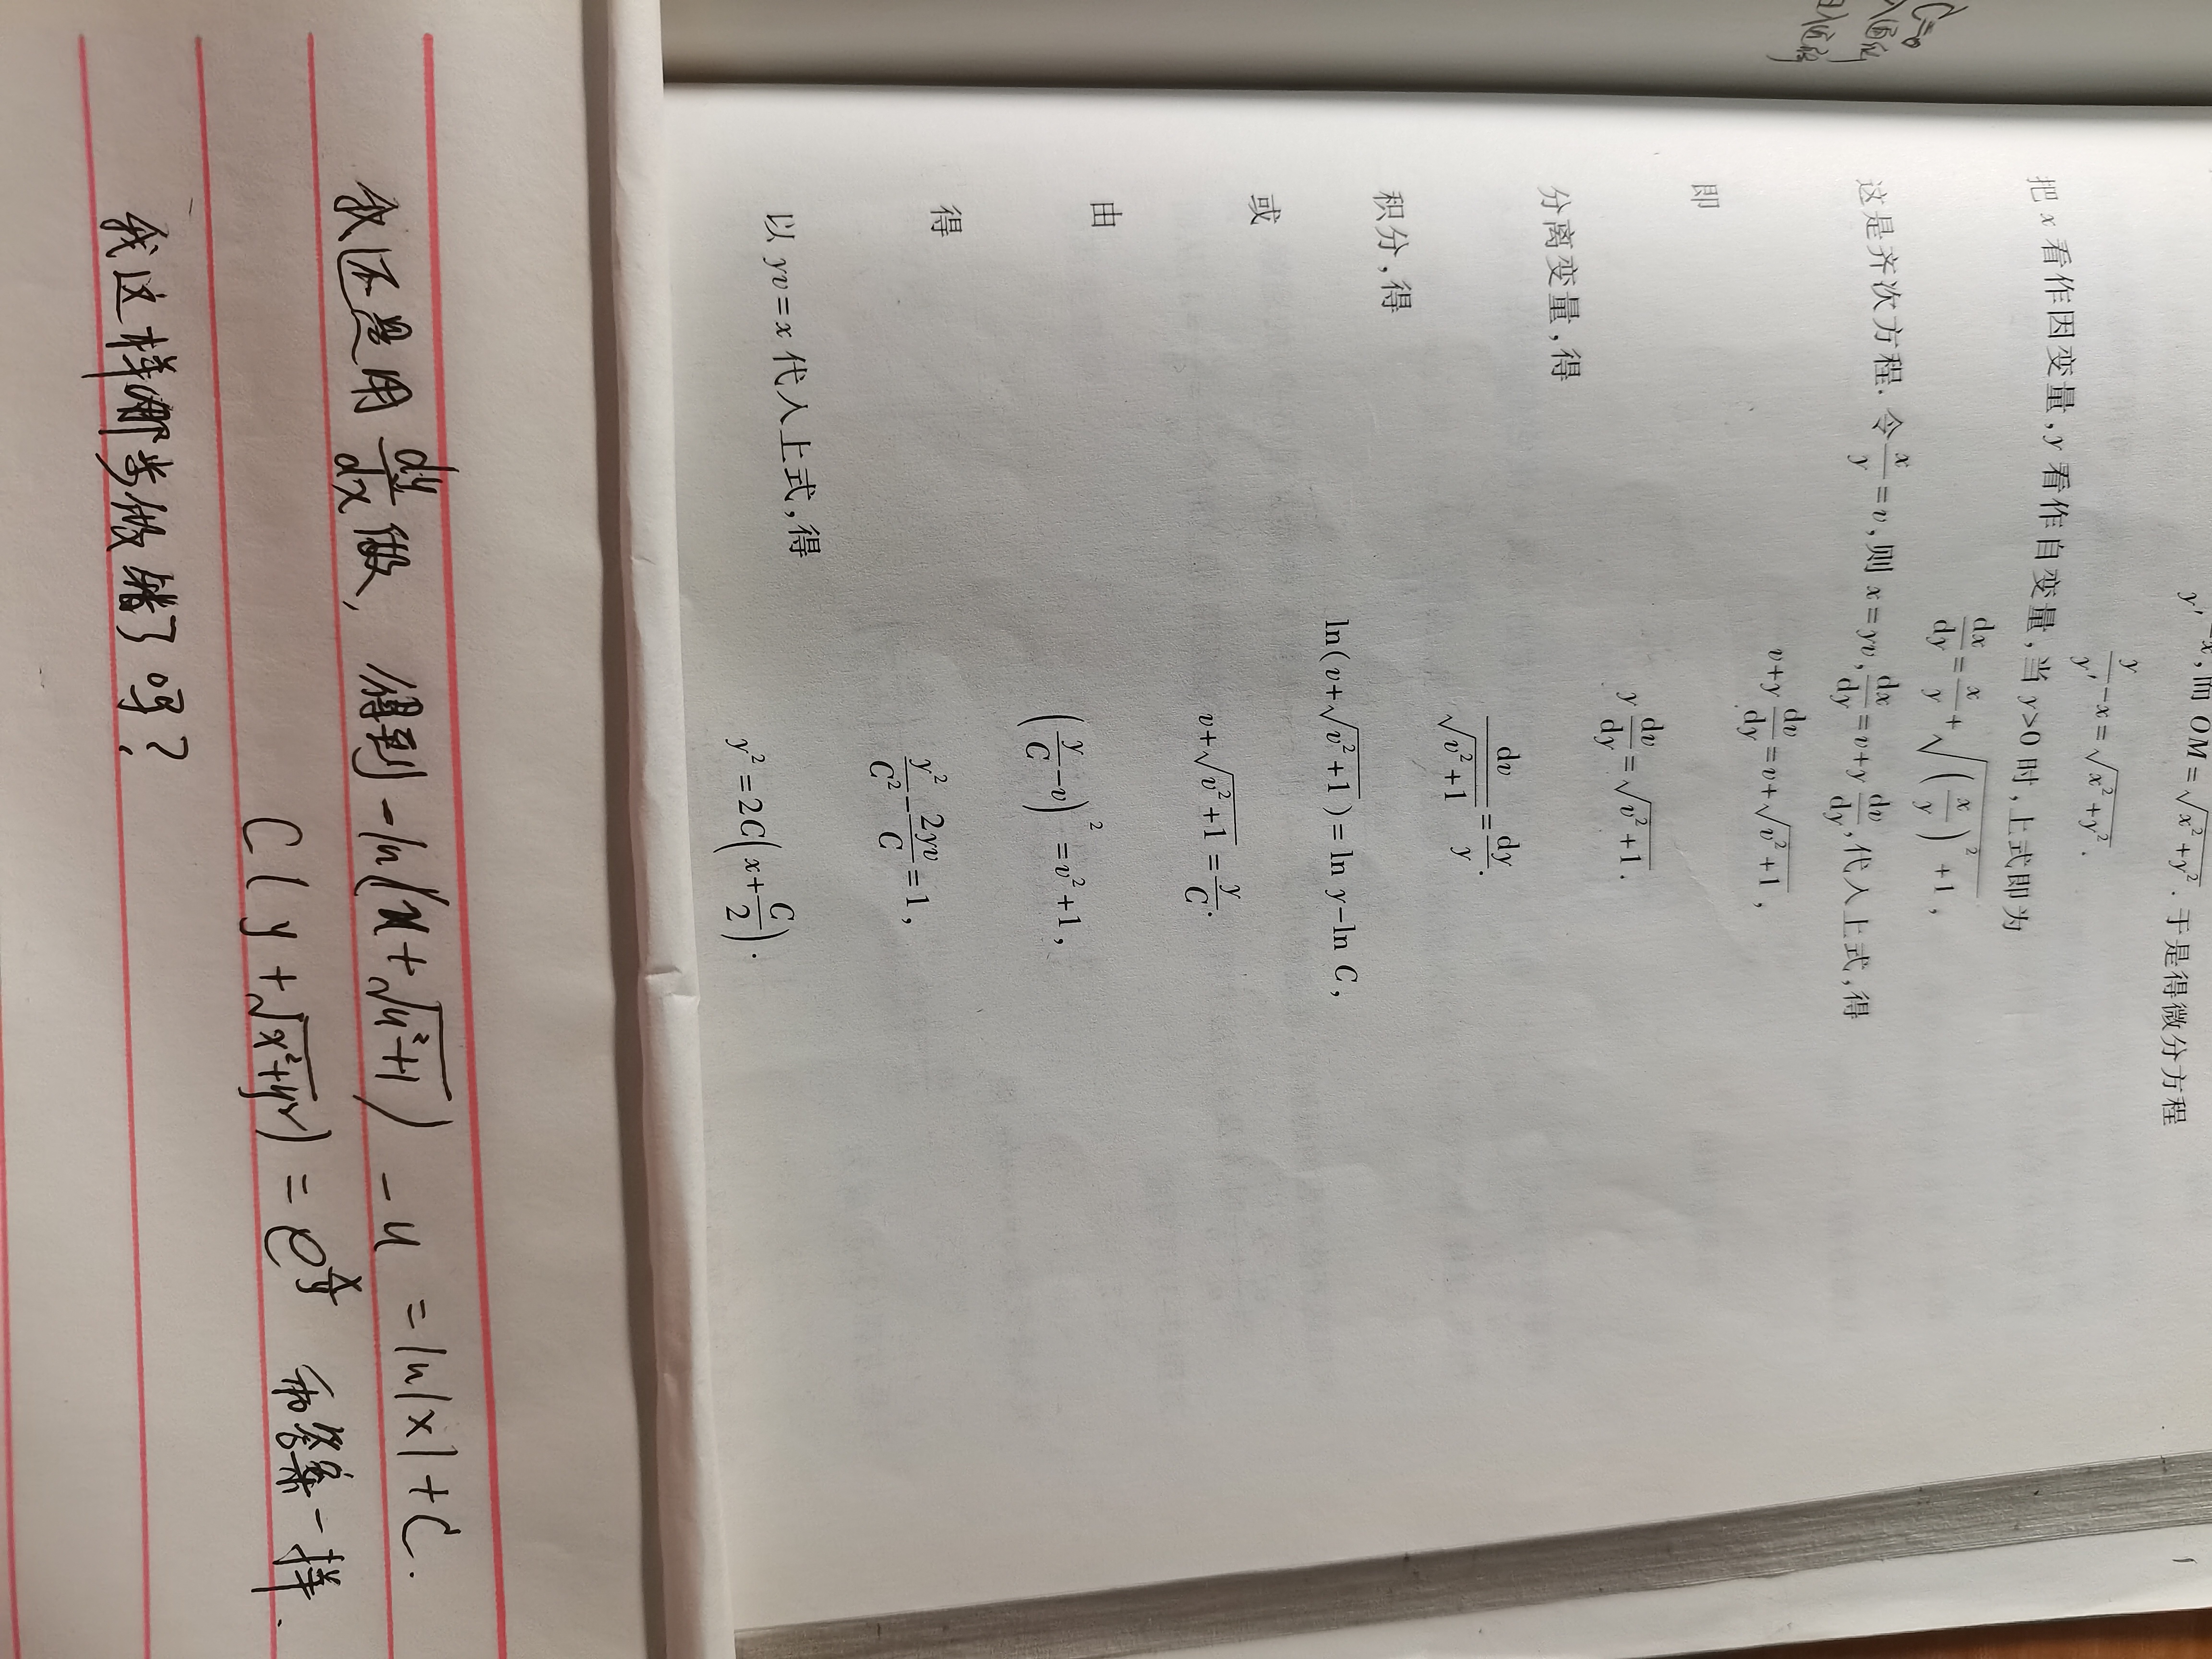 y′-x,而 OM=√(x²+y²). 于是得微分方程
y/y′-x=√(x²+y²).
把 x 看作因变量,y 看作自变量,当 y>0 时,上式即为
dx/dy=x/y+√((x/y)²+1),
这是齐次方程. 令 x/y=v,则 x=yv, dx/dy=v+y dv/dy,代入上式,得
v+y dv/dy=v+√(v²+1),
即 y dv/dy=√(v²+1).
分离变量,得 dv/√(v²+1)=dy/y.
积分,得 ln(v+√(v²+1))=ln y-ln C,
或 v+√(v²+1)=y/C.
由 (y/C-v)²=v²+1,
得 y²/C²-2yv/C=1,
以 yv=x 代入上式,得
y²=2C(x+C/2).
我还是用 dy/dx 做, 得到 -ln(u+√(u²+1)) -u =ln|x|+C.
C(y+√(x²+y²))=e^(x/y) 和答案一样.
我这样哪步做错了吗?